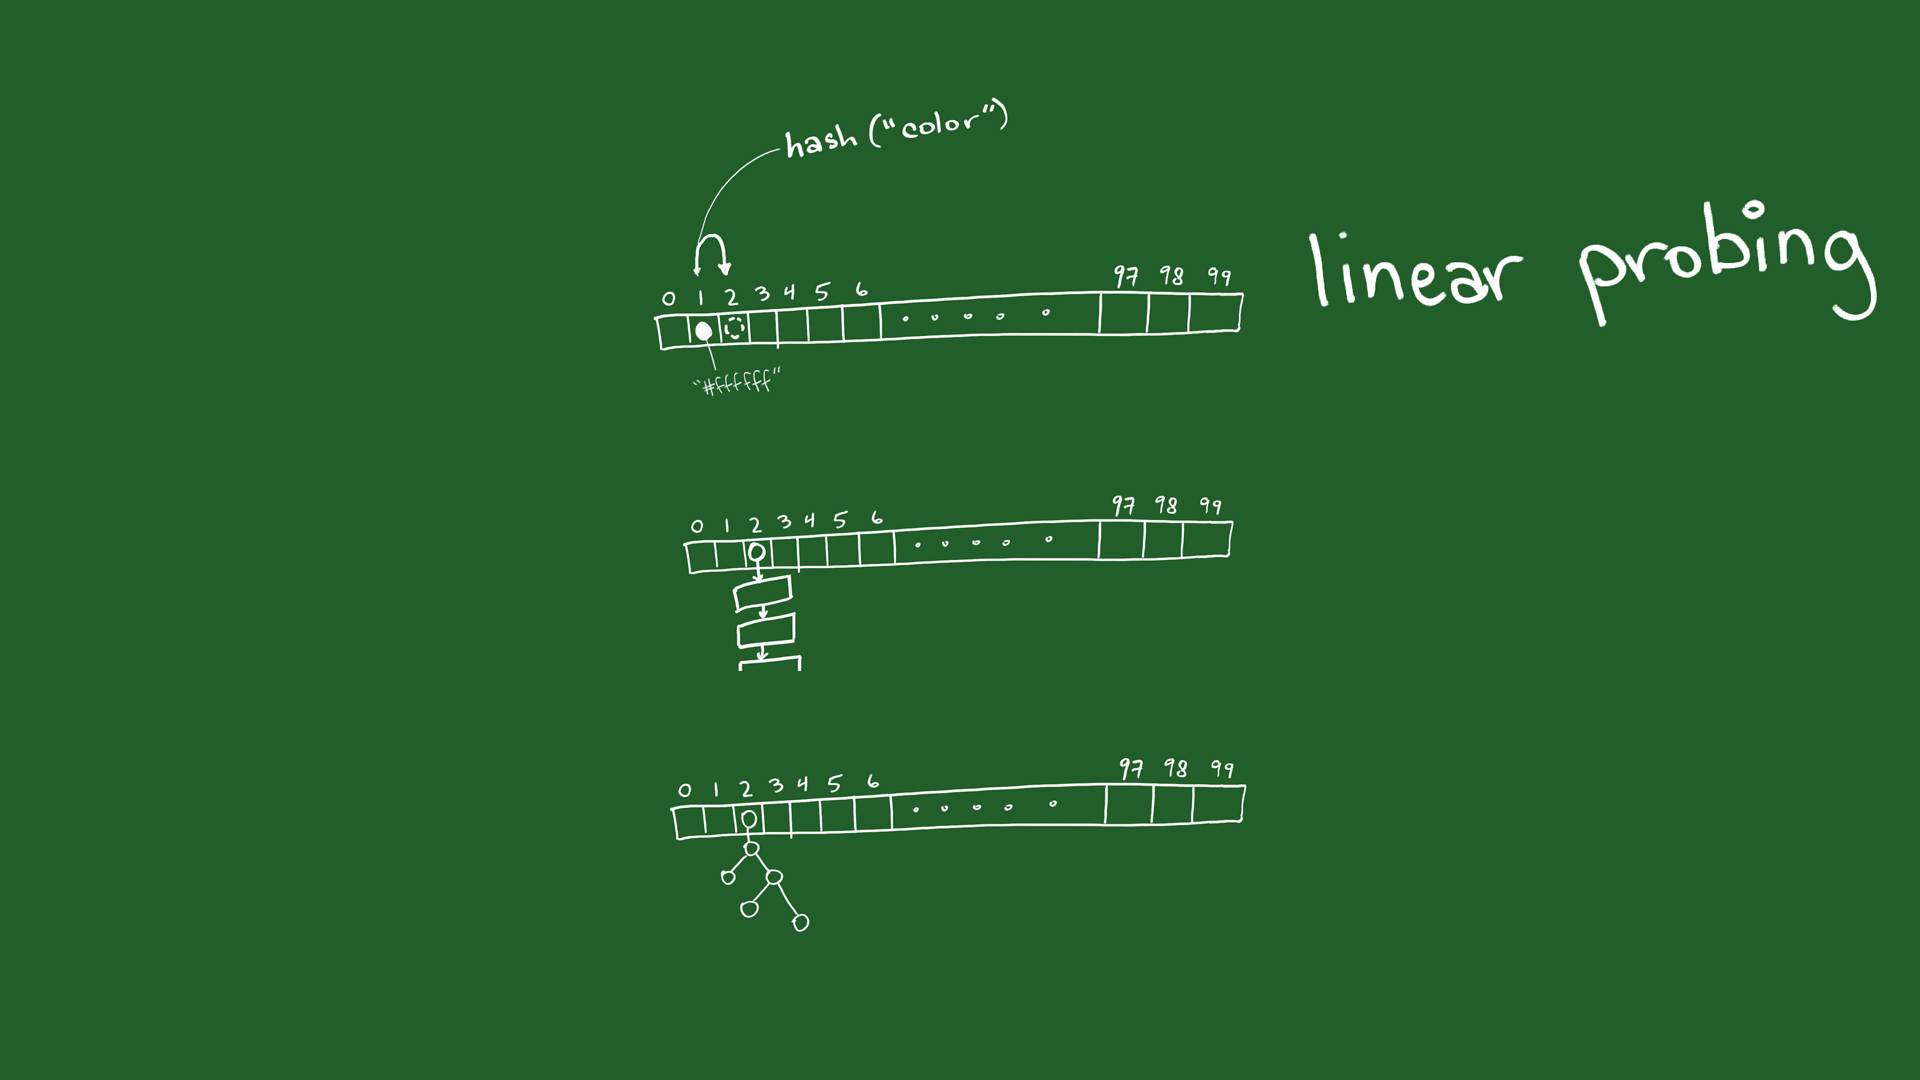 hash ("color")
linear probing
0 1 2 3 4 5 6 97 98 99
"#ffffff"
0 1 2 3 4 5 6 97 98 99
0 1 2 3 4 5 6 97 98 99